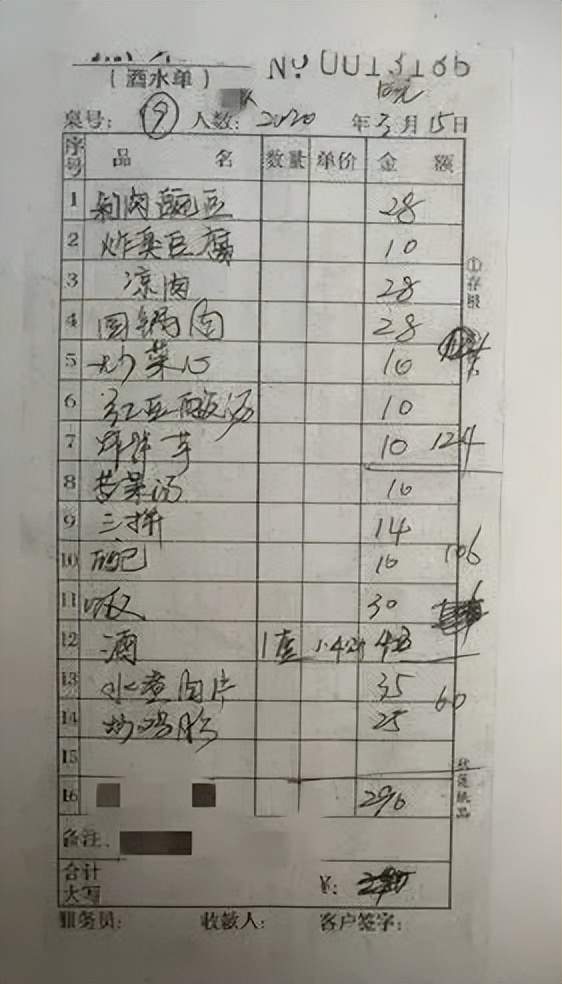 （酒水单）
№ 0013186
10元
桌号： 9 人数： 2020 年 3 月 15 日
序号 品 名 数量 单价 金 额
1 28
2 炸臭豆腐 10
3 凉肉 28
4 回锅肉 28
5 炒菜心 10
6 红豆酸汤 10
7 炸洋芋 10 124
8 苦菜汤 10
9 三拼 14
10 10 106
11 饭 30
12 酒 1壶 42
13 水煮肉片 35 60
14 25
15
16 296
备注：
合计
大写 ¥：
服务员： 收款人： 客户签字：
①存根